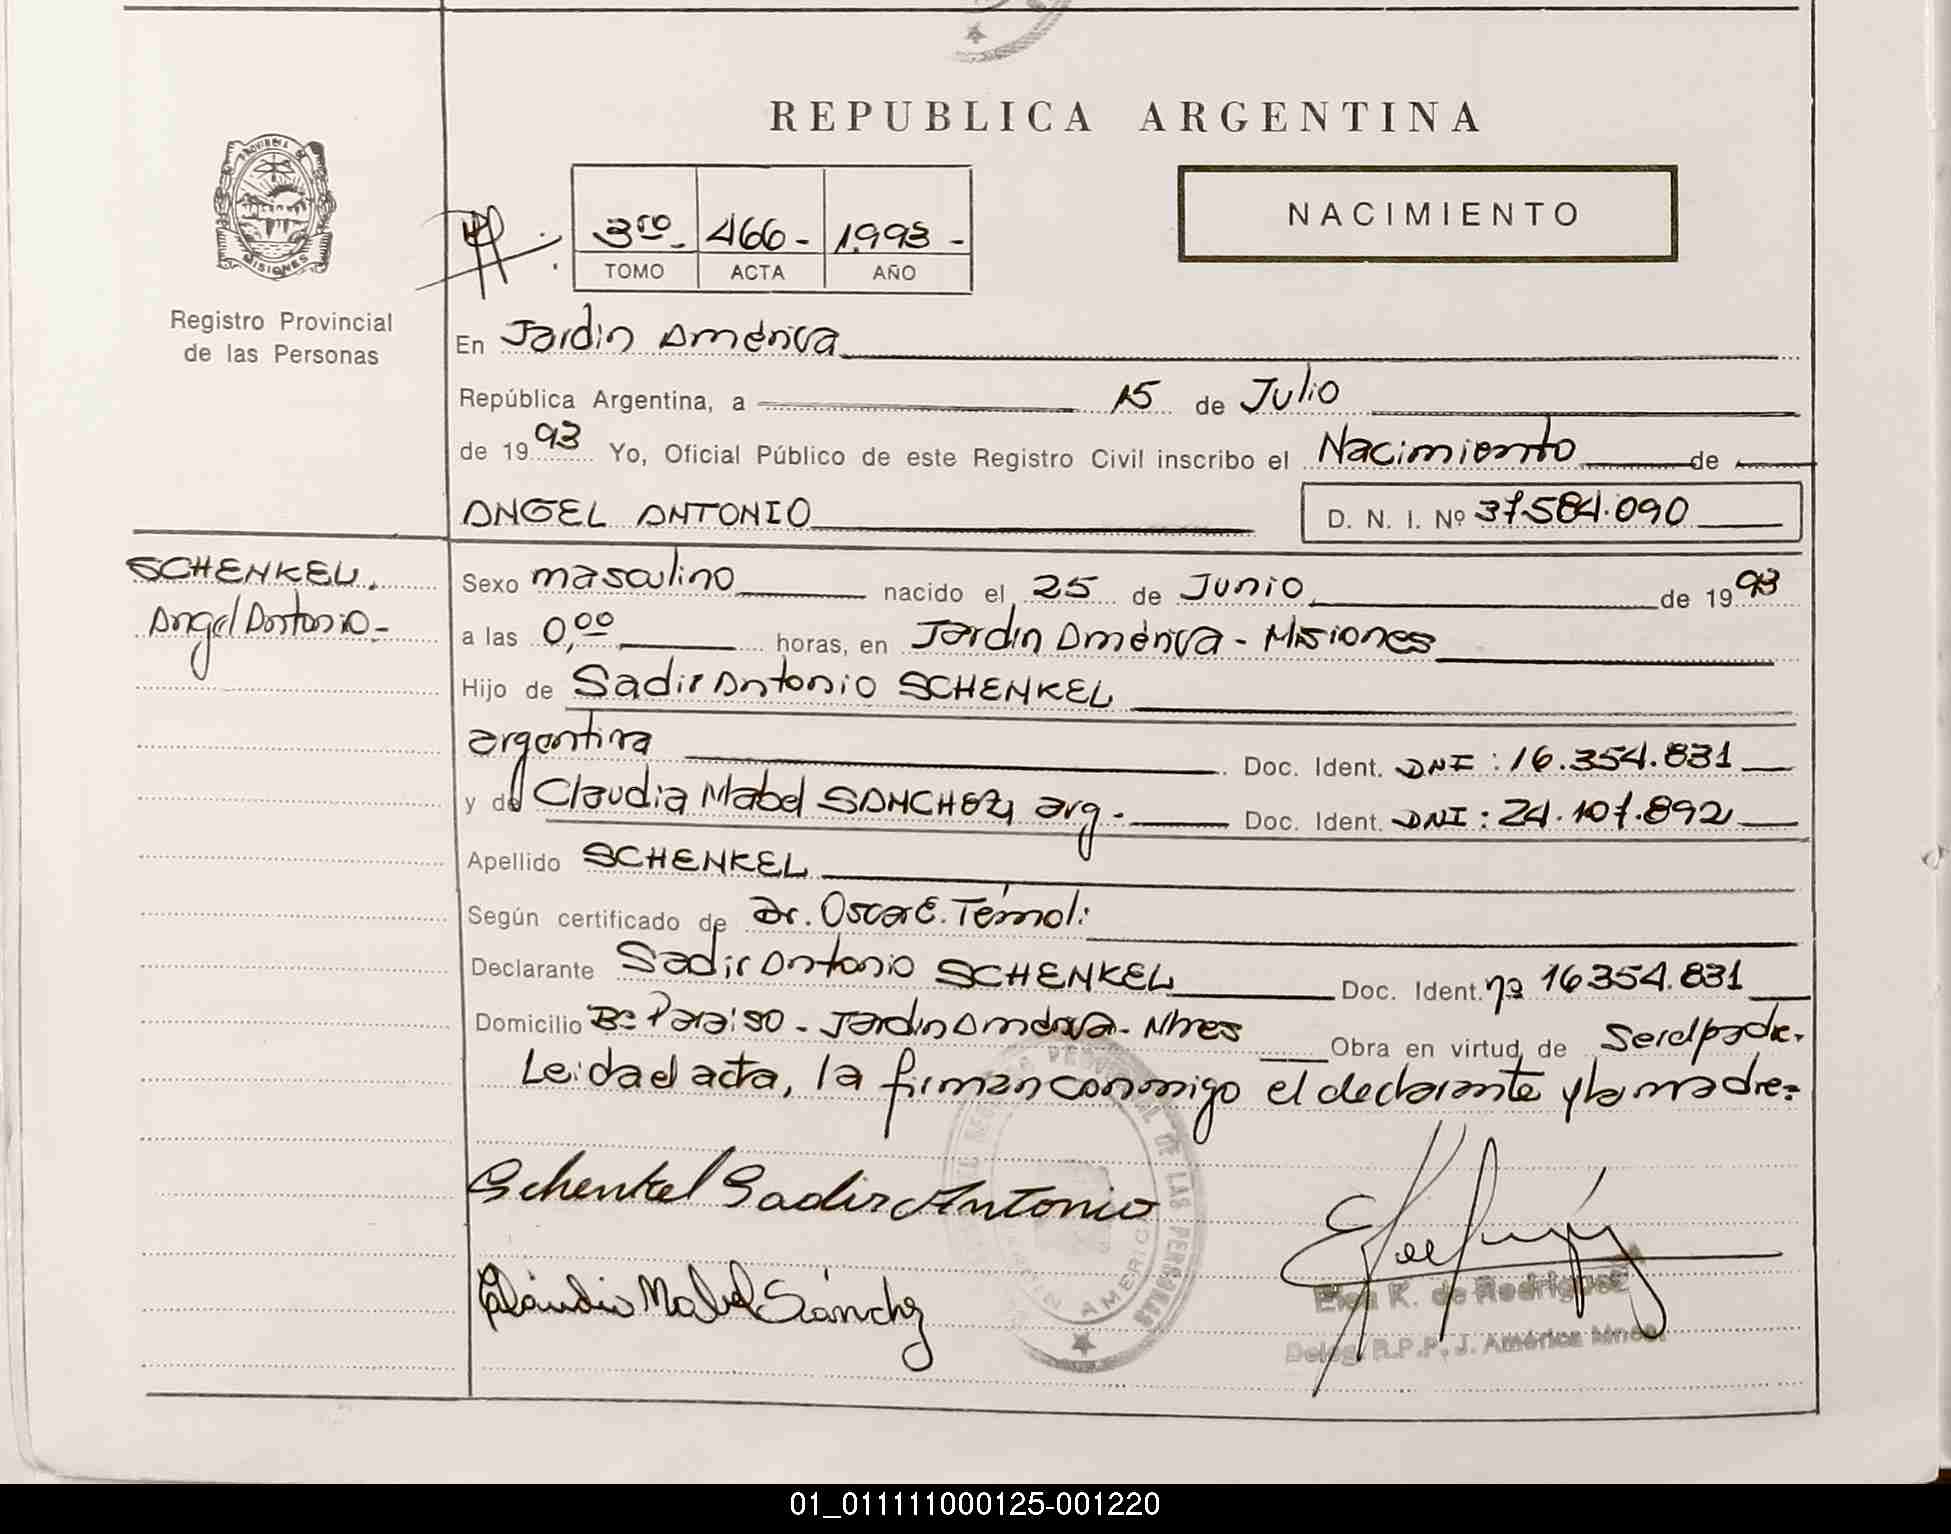 REPUBLICA ARGENTINA
PROVINCIA DE
MISIONES
Registro Provincial
de las Personas
NACIMIENTO
3ro - 466 - 1.993 -
TOMO ACTA AÑO
En Jardin América
República Argentina, a 15 de Julio
de 1993 Yo, Oficial Público de este Registro Civil inscribo el Nacimiento de
ANGEL ANTONIO D. N. I. Nº 37.584.090
SCHENKEL.
Angel Antonio -
Sexo masculino nacido el 25 de Junio de 1993
a las 0,00 horas, en Jardin América - Misiones
Hijo de Sadir Antonio SCHENKEL
argentina Doc. Ident. DNI : 16.354.831
y de Claudia Mabel SANCHEZ, arg. - Doc. Ident. DNI : 24.107.892
Apellido SCHENKEL
Según certificado de Dr. Oscar E. Témoli
Declarante Sadir Antonio SCHENKEL Doc. Ident. nº 16354.831
Domicilio Bº Paraiso - Jardin América - Mnes Obra en virtud de Ser el padre.
Leida el acta, la firman conmigo el declarante y la madre =
Schenkel Sadir Antonio
Claudia Mabel Sánchez
DE LAS PERSONAS
AMERICA
Elsa K. de Rodriguez
Deleg. R.P.P. J. América Mnes.
01_011111000125-001220